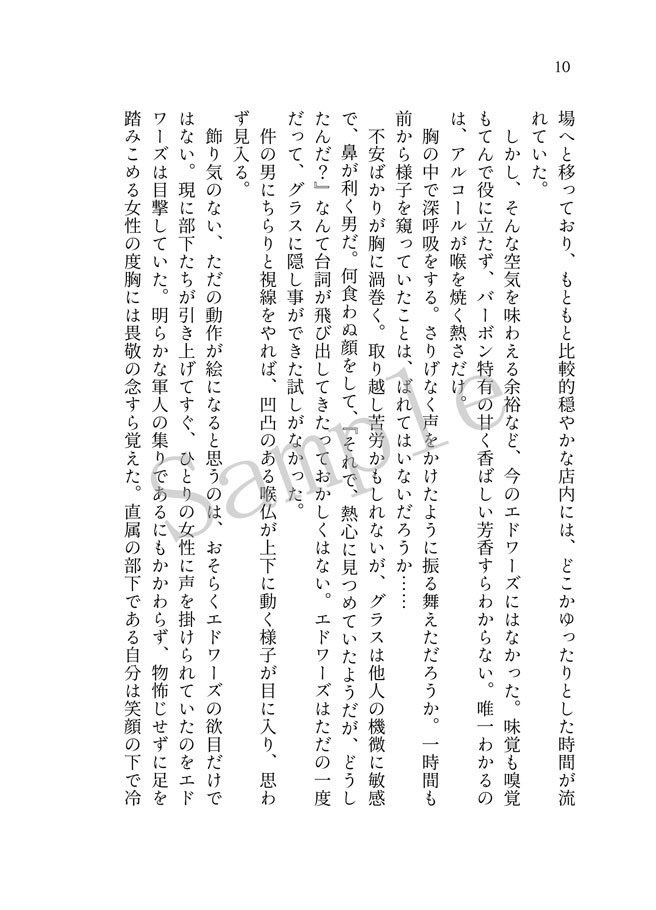 10
場へと移っており、もともと比較的穏やかな店内には、どこかゆったりとした時間が流
れていた。
しかし、そんな空気を味わえる余裕など、今のエドワーズにはなかった。味覚も嗅覚
もてんで役に立たず、バーボン特有の甘く香ばしい芳香すらわからない。唯一わかるの
は、アルコールが喉を焼く熱さだけ。
胸の中で深呼吸をする。さりげなく声をかけたように振る舞えただろうか。一時間も
前から様子を窺っていたことは、ばれてはいないだろうか……
不安ばかりが胸に渦巻く。取り越し苦労かもしれないが、グラスは他人の機微に敏感
で、鼻が利く男だ。何食わぬ顔をして、『それで、熱心に見つめていたようだが、どうし
たんだ？』なんて台詞が飛び出してきたっておかしくはない。エドワーズはただの一度
だって、グラスに隠し事ができた試しがなかった。
件の男にちらりと視線をやれば、凹凸のある喉仏が上下に動く様子が目に入り、思わ
ず見入る。
飾り気のない、ただの動作が絵になると思うのは、おそらくエドワーズの欲目だけで
はない。現に部下たちが引き上げてすぐ、ひとりの女性に声を掛けられていたのをエド
ワーズは目撃していた。明らかな軍人の集りであるにもかかわらず、物怖じせずに足を
踏みこめる女性の度胸には畏敬の念すら覚えた。直属の部下である自分は笑顔の下で冷
Sample